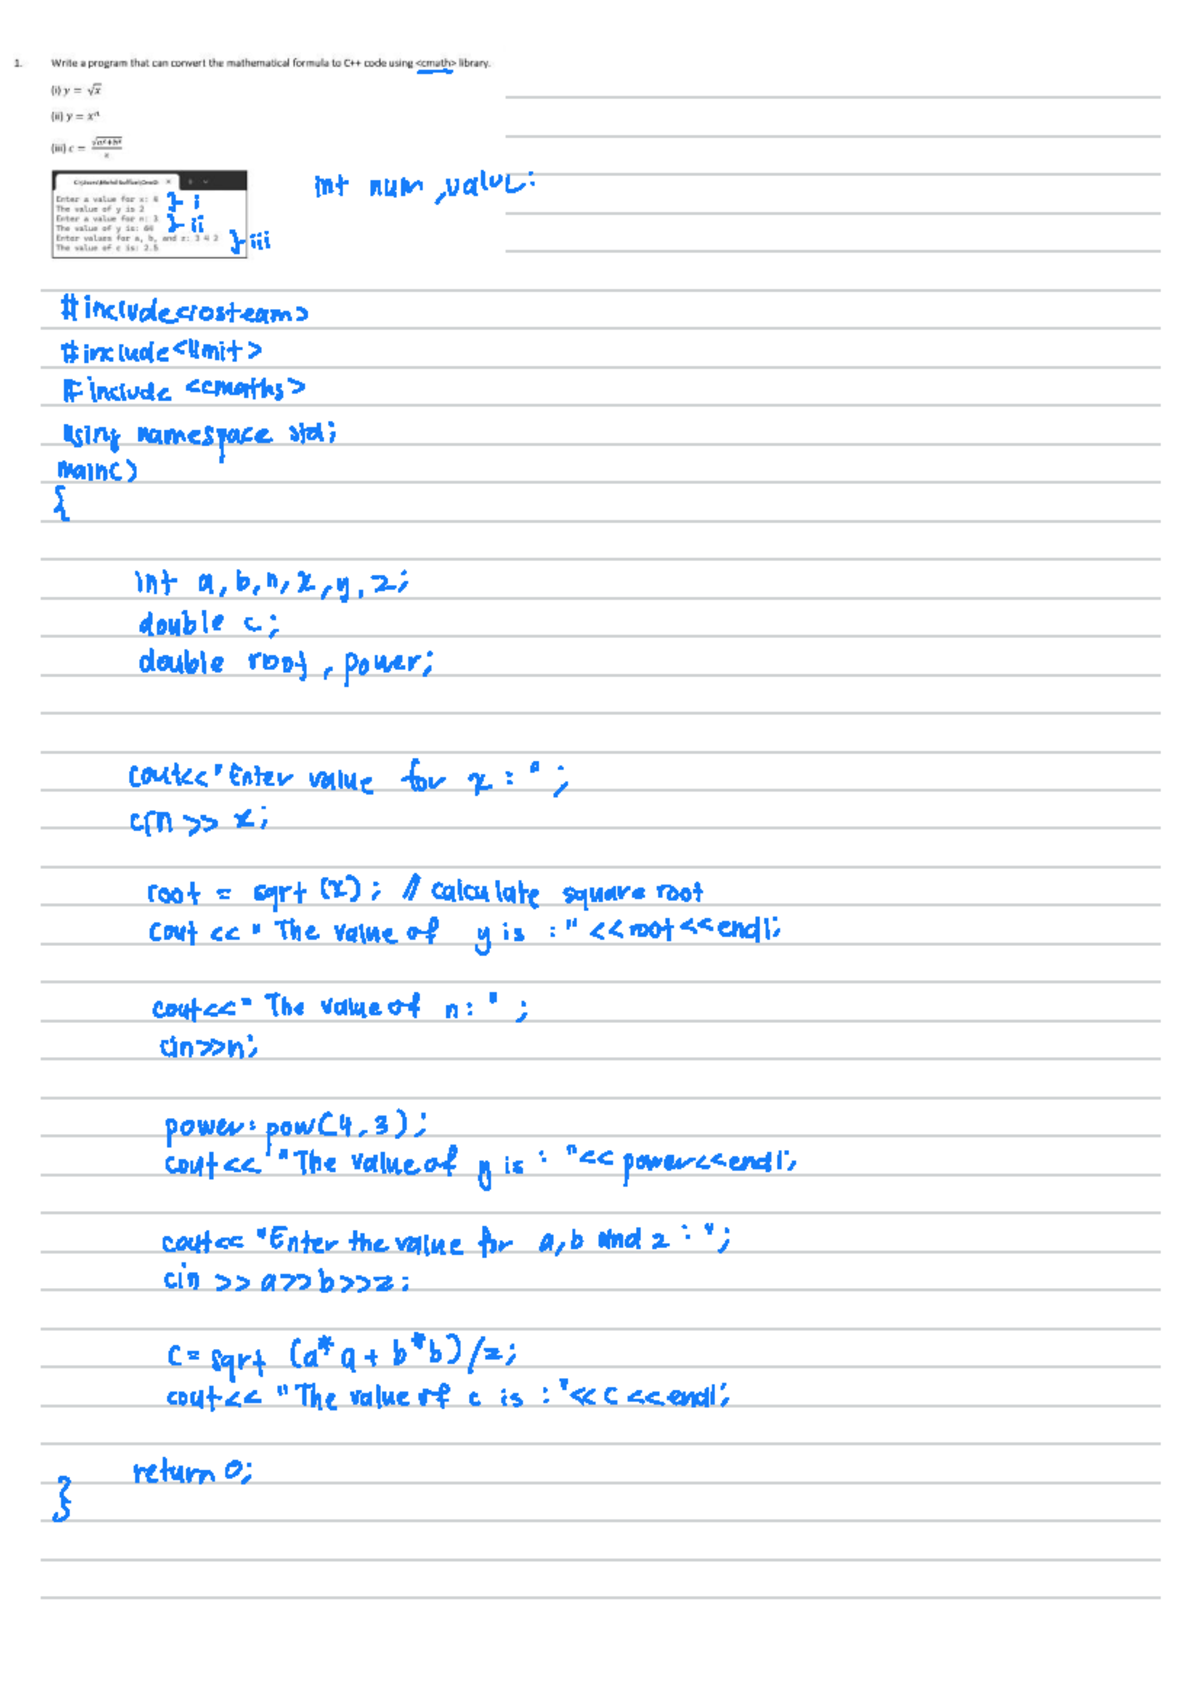 1. Write a program that can convert the mathematical formula to C++ code using <cmath> library.
(i) y = √x
(ii) y = xⁿ
(iii) c = √a²+b² / z
Enter a value for x: 4
The value of y is 2
Enter a value for n: 3
The value of y is: 64
Enter values for a, b, and z: 3 4 2
The value of c is: 2.5
} i
} ii
} iii
int num ,value;
#include<iosteam>
#include<limit>
#include <cmaths>
using namespace std;
main()
{
int a, b, n, x, y, z;
double c;
double root, power;
cout<<"Enter value for x : " ;
cin >> x;
root = sqrt (x) ; // calculate square root
cout << " The value of y is : " <<root<<endl;
cout<<" The value of n: " ;
cin>>n;
power= pow(4,3);
cout<< "The value of y is : "<< power<<endl;
cout<< "Enter the value for a,b and z : ";
cin >> a>>b>>z;
C = sqrt (a*a + b*b)/z;
cout<< "The value of c is : "<< C <<endl;
return 0;
}